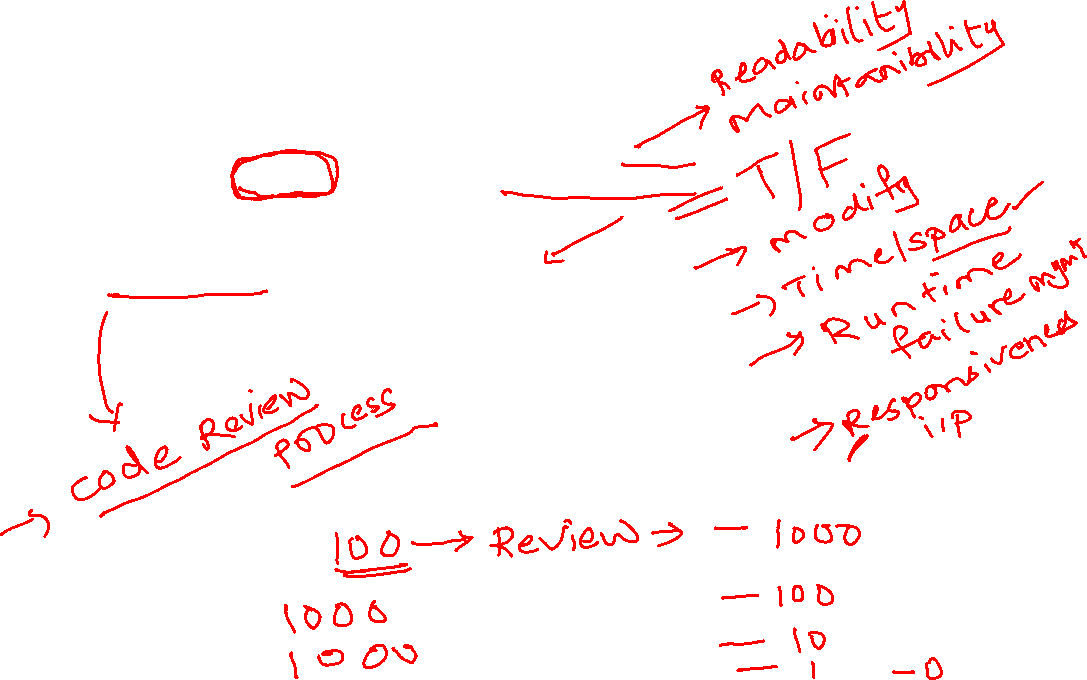 Readability
maintanibility
T/F
modify
Time/space
Runtime
failure mgmt
Responsiveness
i/p
code Review
process
100 → Review → - 1000
1000 - 100
1000 - 10
- 1 - 0